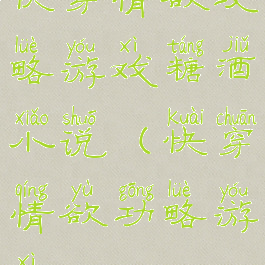 穿情欲
lüè yóu xì táng Jiǔ
略游戏糖酒
xiǎo shuō Kuài chuān
小说（快穿
qíng yù gōng lüè yóu
情欲功略游
xì